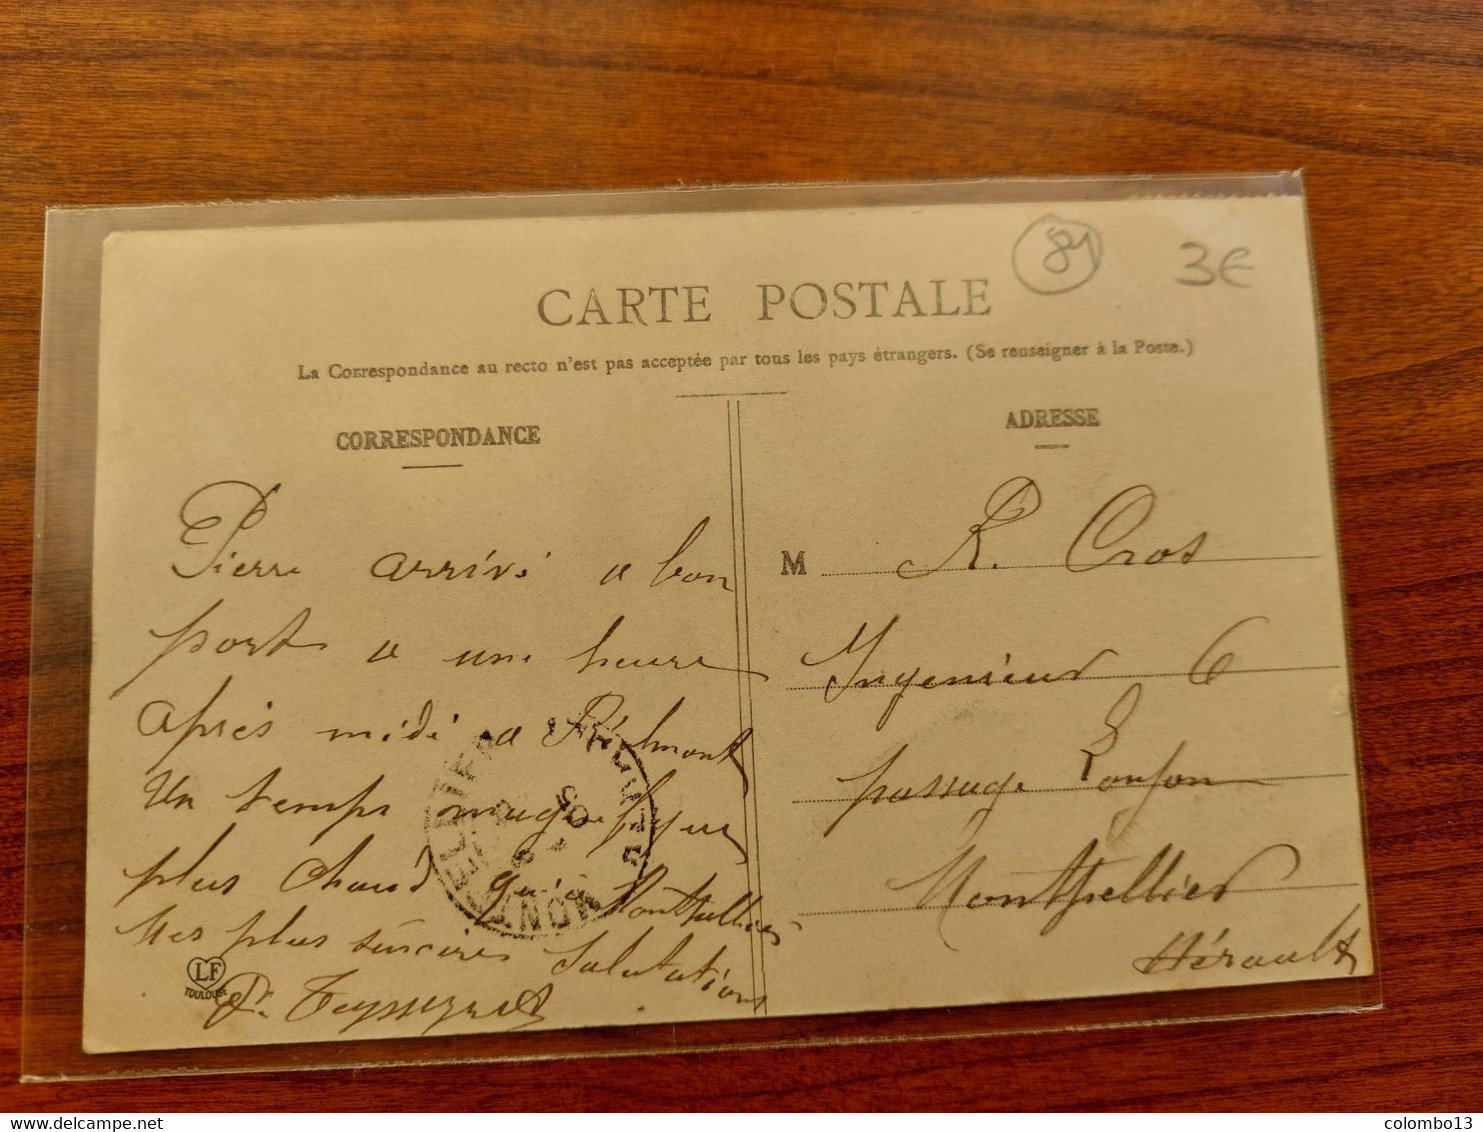 84
3€
CARTE POSTALE
La Correspondance au recto n'est pas acceptée par tous les pays étrangers. (Se renseigner à la Poste.)
CORRESPONDANCE
Pierre arrivé a bon
port a une heure
après midi a Réalmont
Un temps magnifique
plus chaud qu'à Montpellier
Mes plus sincères Salutations
P. Teysseyre
LF
TOULOUSE
MONTPELLIER
HERAULT
05
ADRESSE
M R. Cros
Ingenieur 6
passage Lonjon
Montpellier
Hérault
colombo13